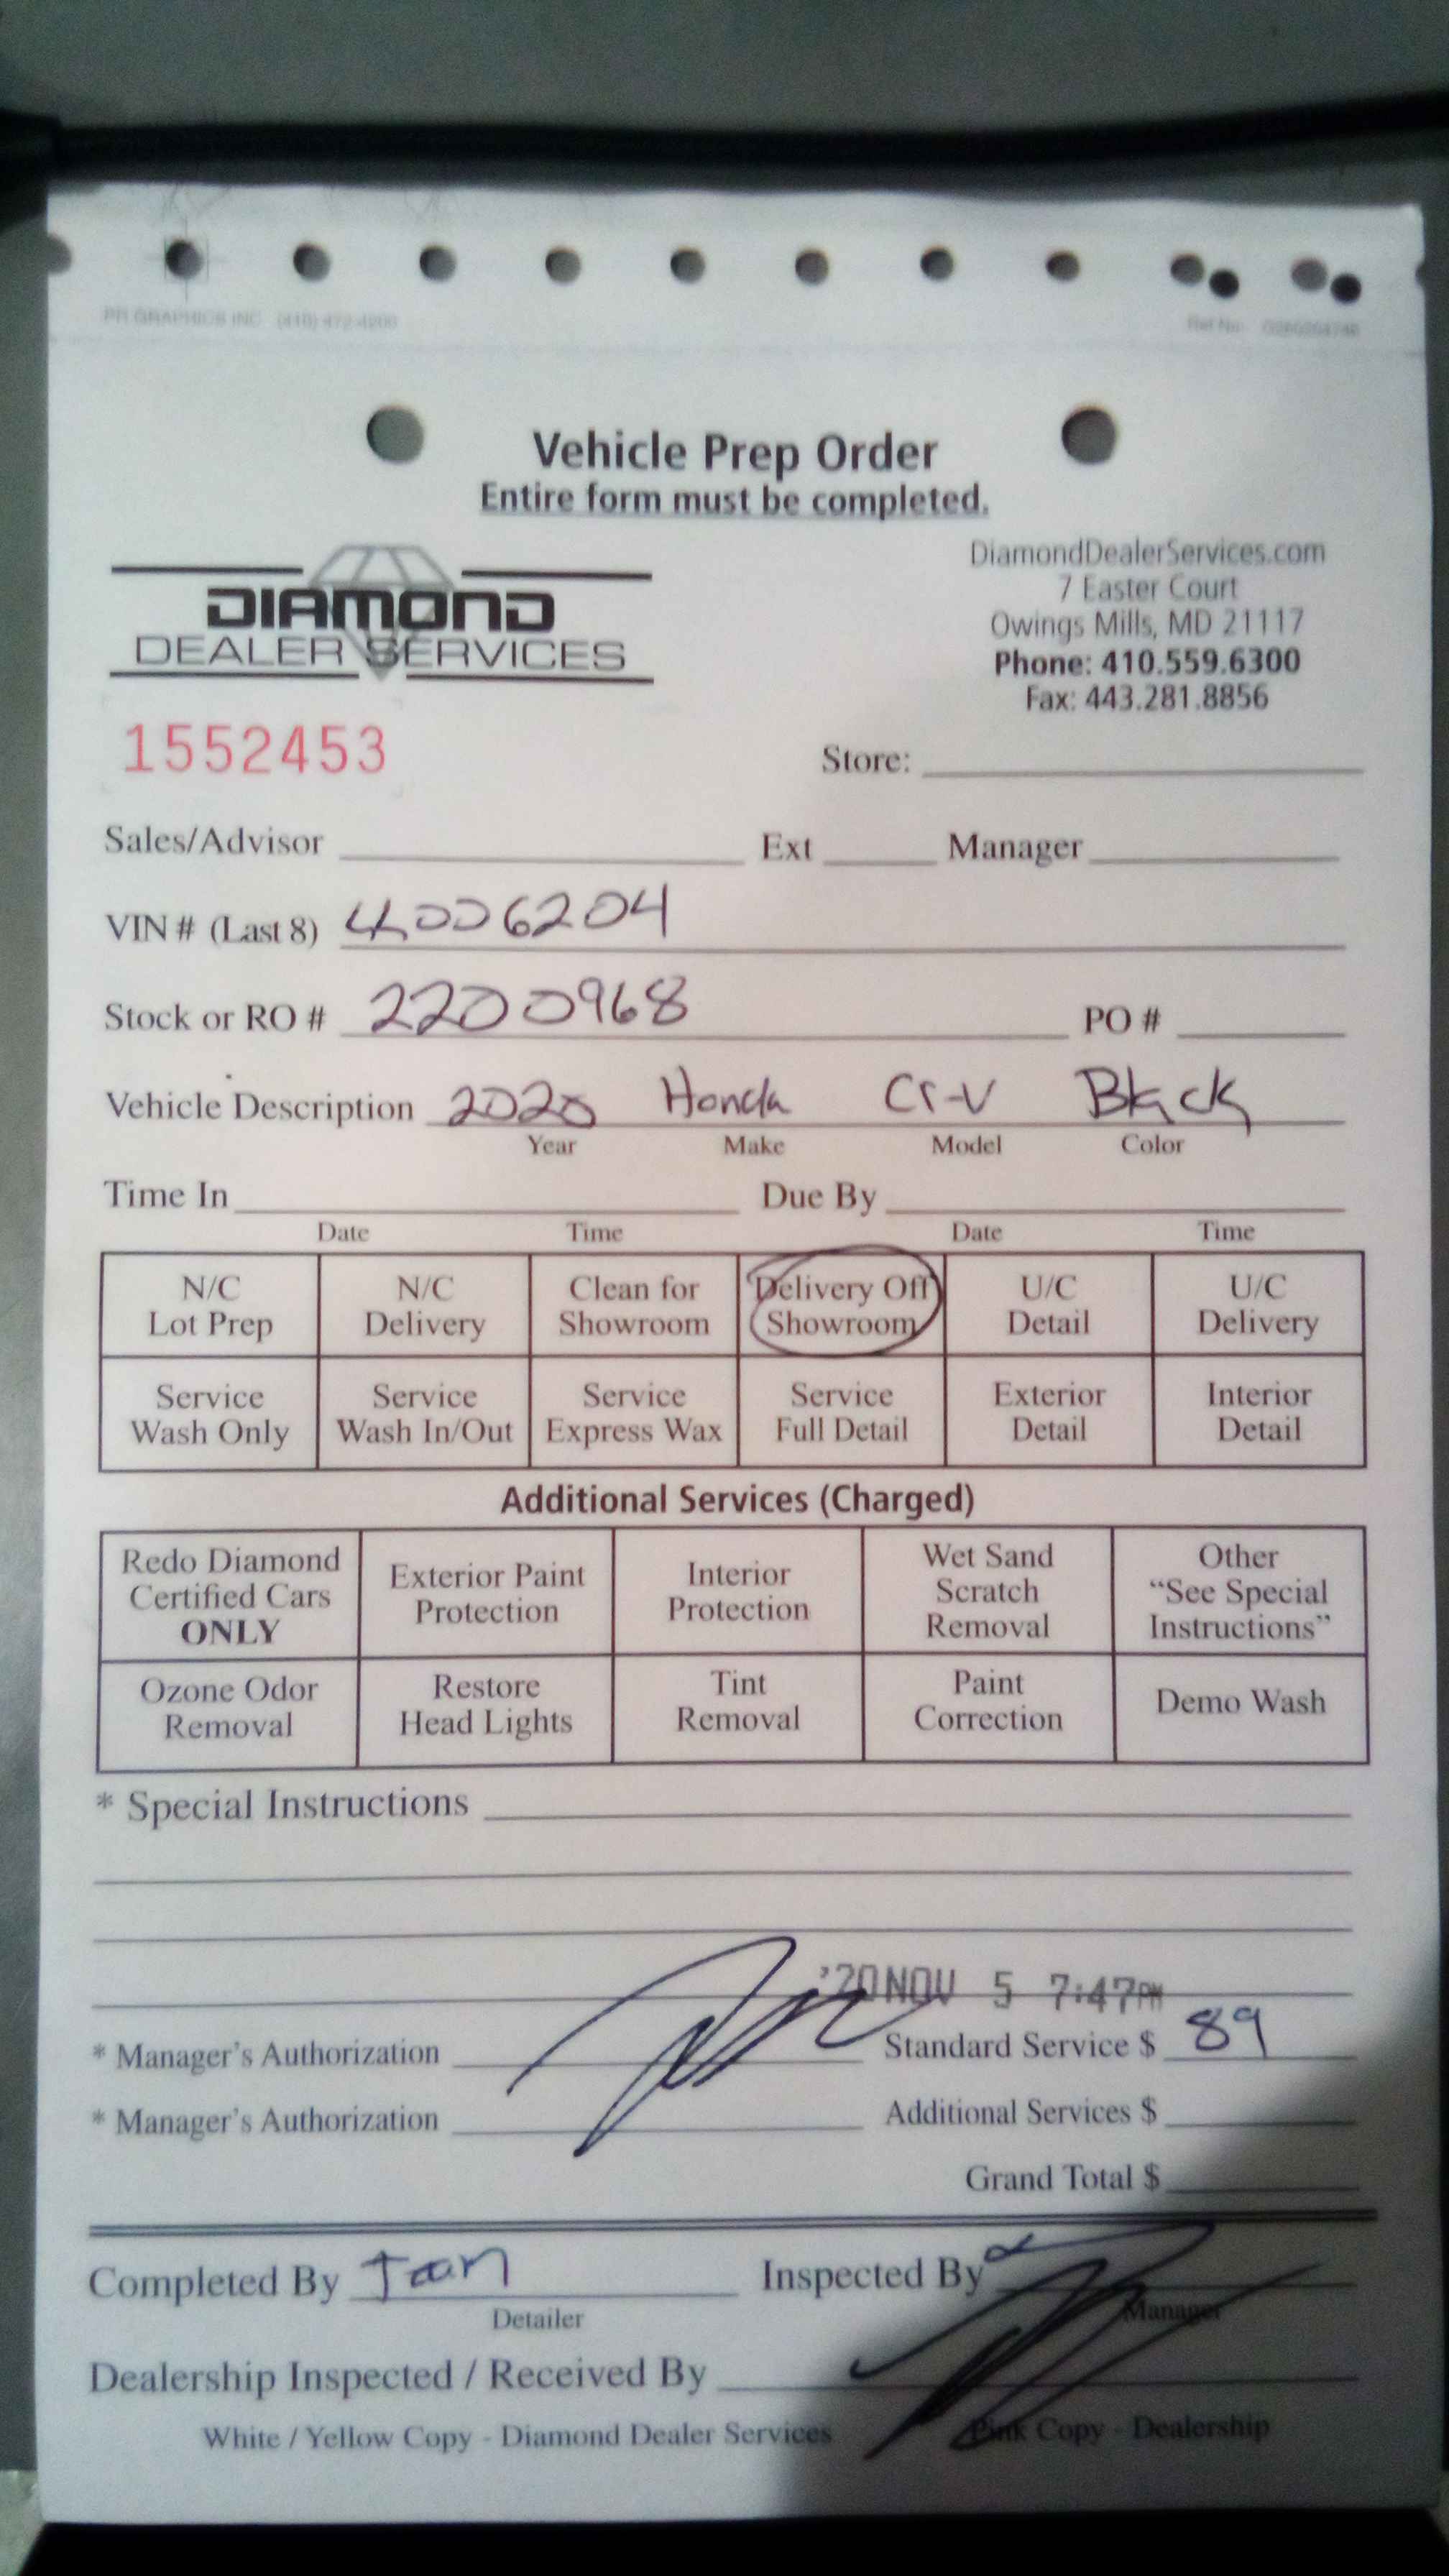 PR GRAPHICS INC (410) 472-4200
Ref No:
Vehicle Prep Order
Entire form must be completed.
DIAMOND
DEALER SERVICES
DiamondDealerServices.com
7 Easter Court
Owings Mills, MD 21117
Phone: 410.559.6300
Fax: 443.281.8856
1552453 Store:
Sales/Advisor Ext Manager
VIN # (Last 8)
Stock or RO # 2200968 PO #
Vehicle Description 2020 Honda Cr-V Black
Year Make Model Color
Time In Due By
Date Time Date Time
N/C Lot Prep N/C Delivery Clean for Showroom Delivery Off Showroom U/C Detail U/C Delivery
Service Wash Only Service Wash In/Out Service Express Wax Service Full Detail Exterior Detail Interior Detail
Additional Services (Charged)
Redo Diamond Certified Cars ONLY Exterior Paint Protection Interior Protection Wet Sand Scratch Removal Other “See Special Instructions”
Ozone Odor Removal Restore Head Lights Tint Removal Paint Correction Demo Wash
* Special Instructions
'20 NOV 5 7:47PM
* Manager's Authorization Standard Service $ 89
* Manager's Authorization Additional Services $
Grand Total $
Completed By Inspected By
Detailer Manager
Dealership Inspected / Received By
White / Yellow Copy - Diamond Dealer Services Pink Copy - Dealership